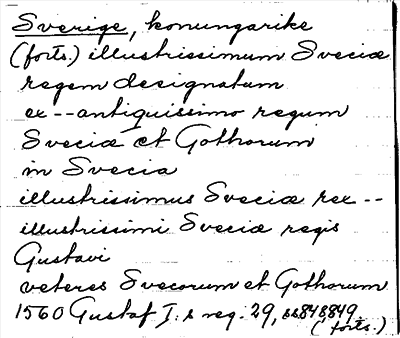 Sverige, konungarike
(forts.) illustrissimum Sveciæ
regem designatum
ex -- antiquissimo regum
Sveciæ et Gothorum
in Svecia
illustrissimus Sveciæ rex --
illustrissimi Sveciæ regis
Gustavi
veteres Svecorum et Gothorum
1560 Gustaf I:s reg. 29, ss 848 849
(forts.)